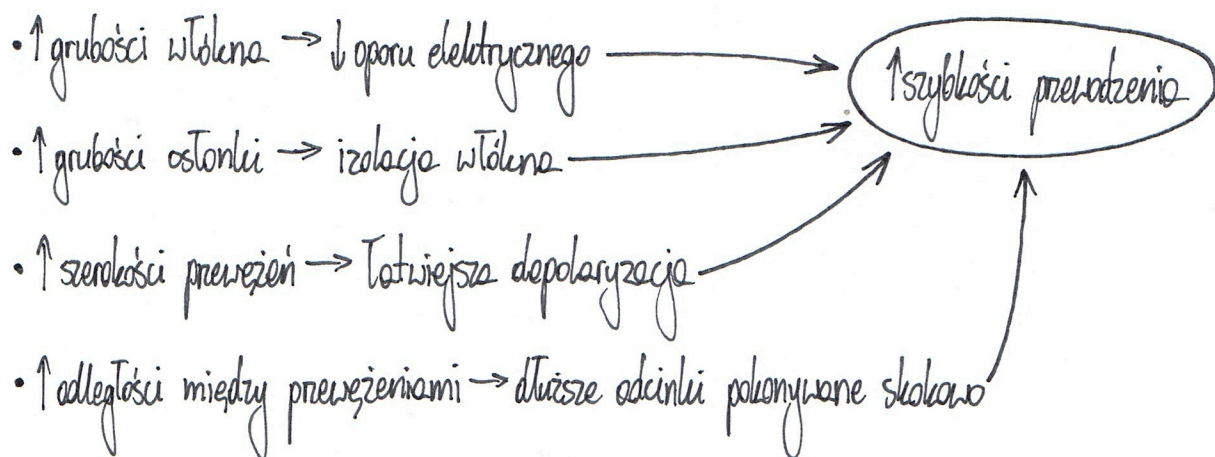 • ↑ grubości włókna → ↓ oporu elektrycznego
↑ szybkości przewodzenia
• ↑ grubości osłonki → izolacja włókna
• ↑ szerokości przewężeń → łatwiejsza depolaryzacja
• ↑ odległości między przewężeniami → dłuższe odcinki pokonywane skokowo